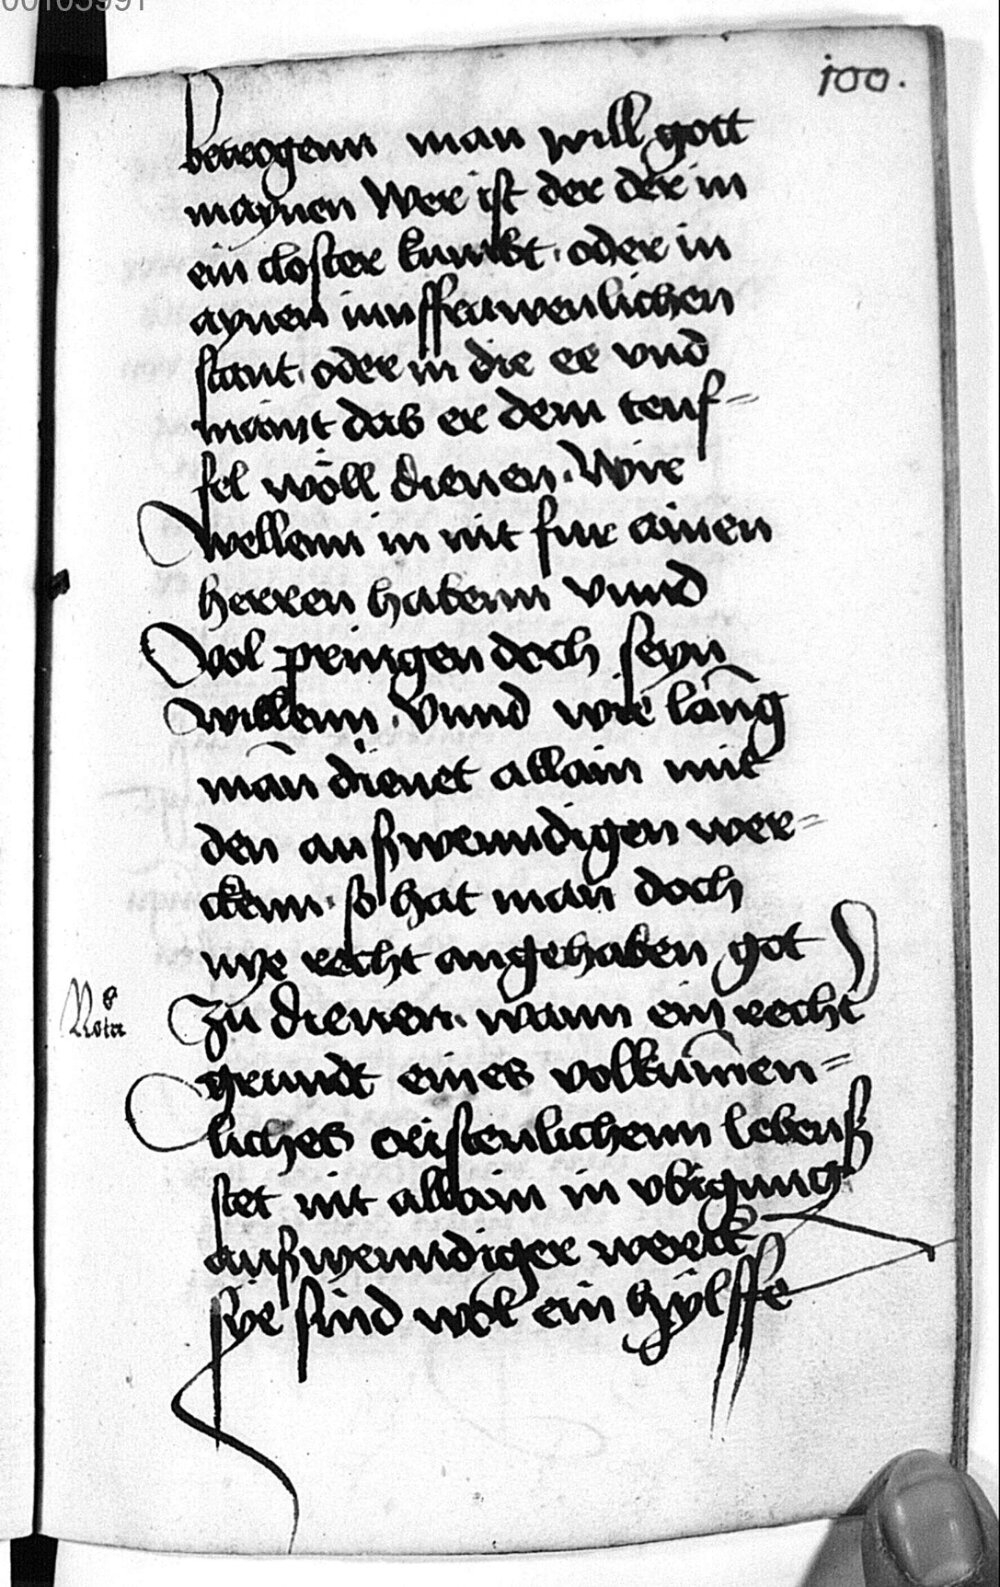 00103991
100.
betrogenn man will gott
maynen Wer ist der der in
ein closter kumbt · oder in
aynen iunffrawenlichen
stant · oder in die ee vnd
maint das er dem teuf=
fel wöll dienen · Wir
wellenn in nit fur ainen
herren habenn vnnd
vol pringen doch seyn
willenn · Vnnd wie lanng
man dienet allain mit
den außwenndigen wer=
ckenn · so hat man doch
nye recht angehaben got
Nota
zu dienen · wann ein recht
grundt eines volkum̄en=
liches cristenlichenn lebenß
stet nit allain in vbigung
außwenndiger werck
sye sind wol ein hylffe